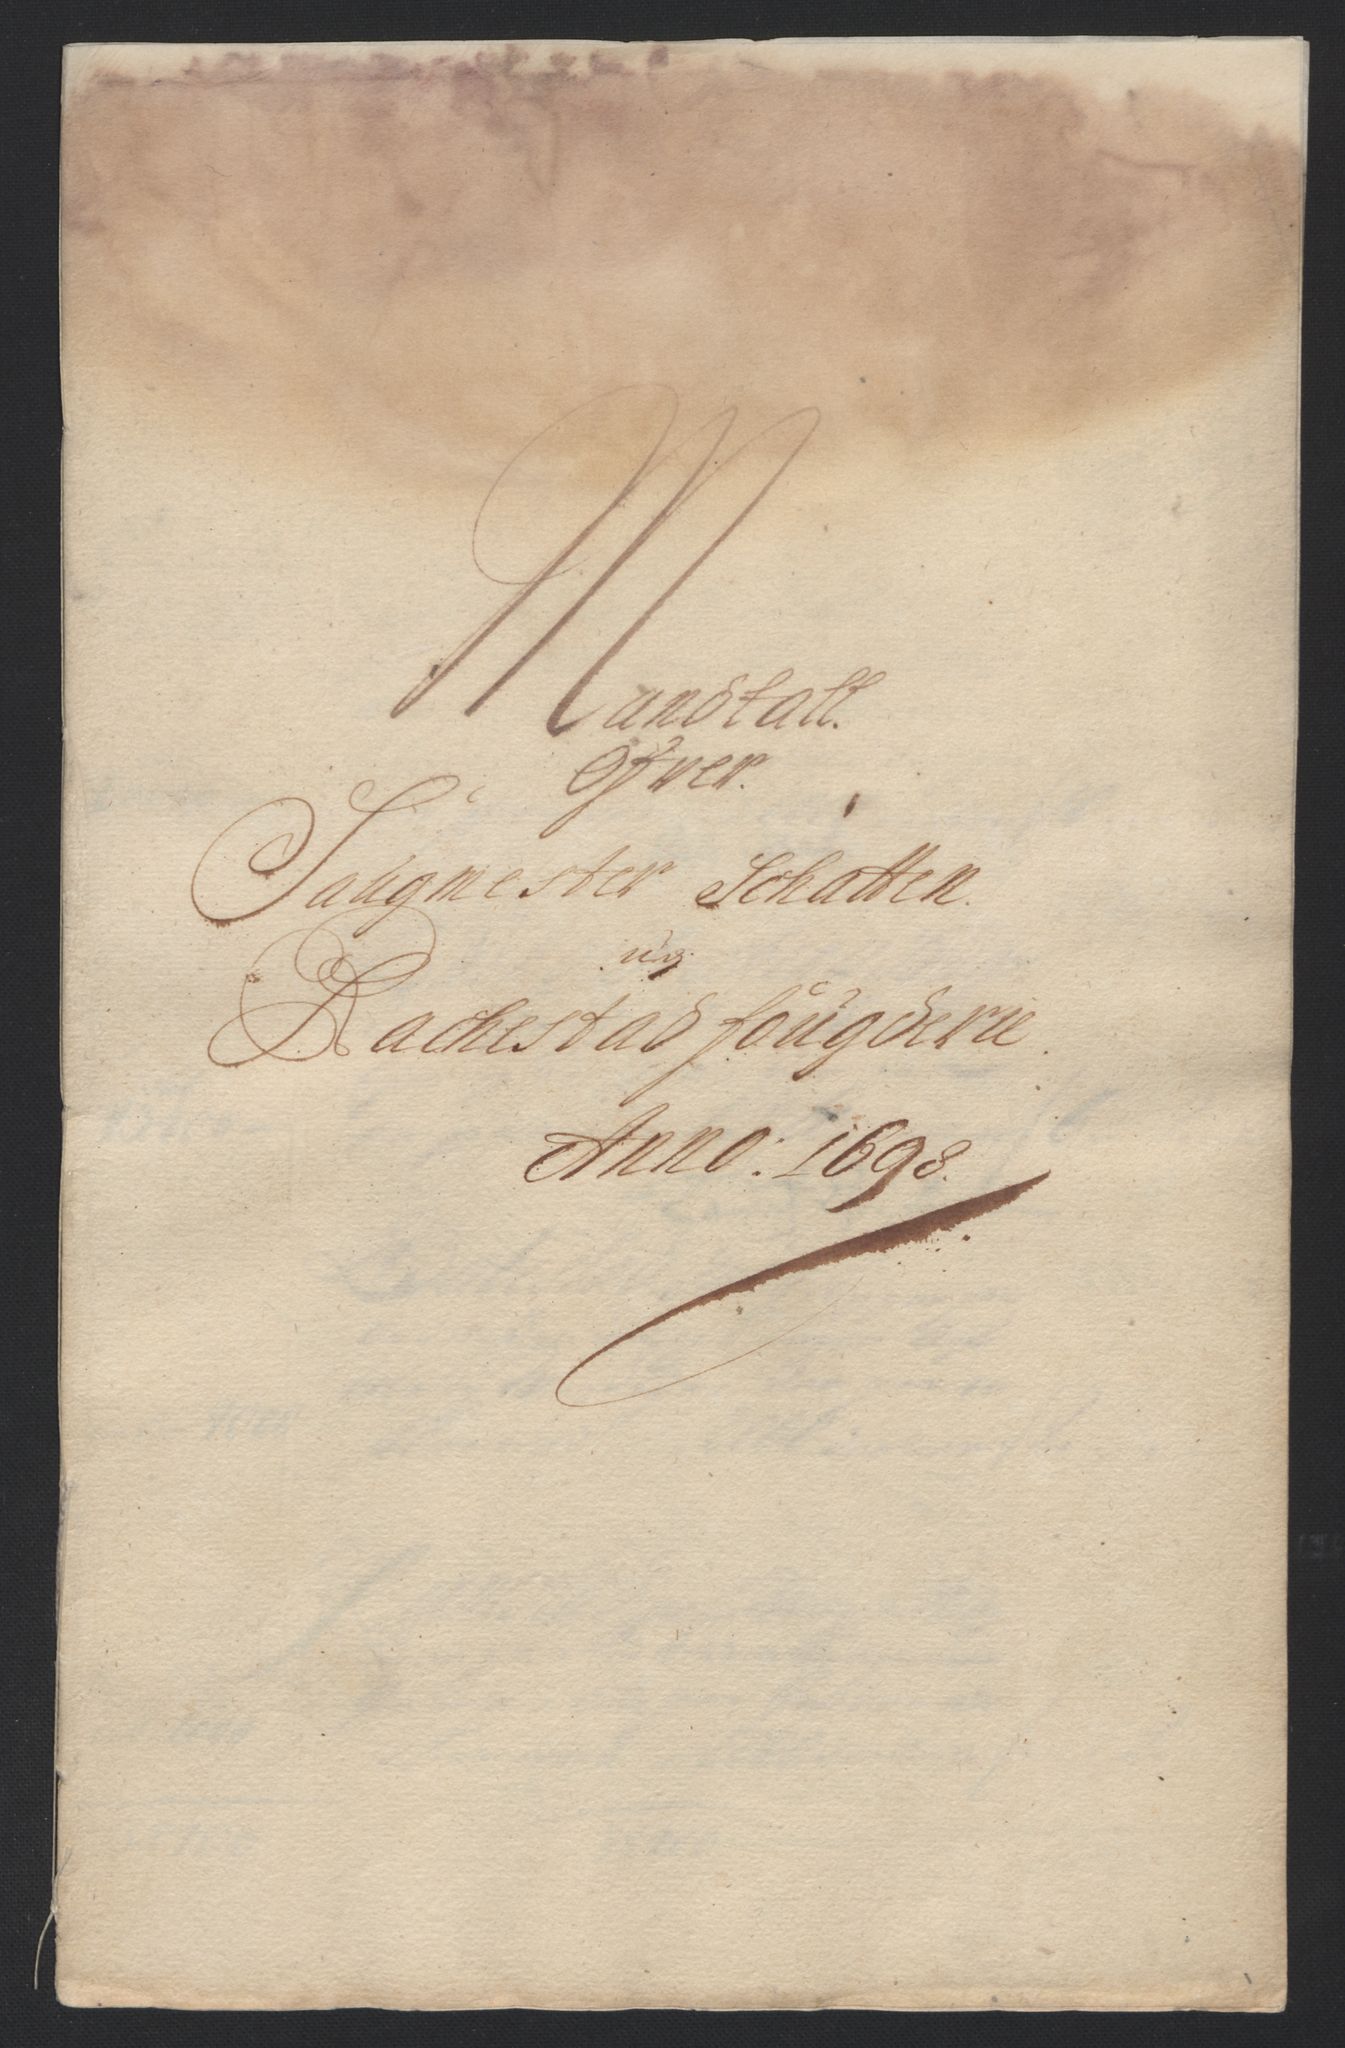 Mandtall.
Ofver.
Jaugmester Schatten.
udj
Rachestad fougderie.
Anno: 1698.